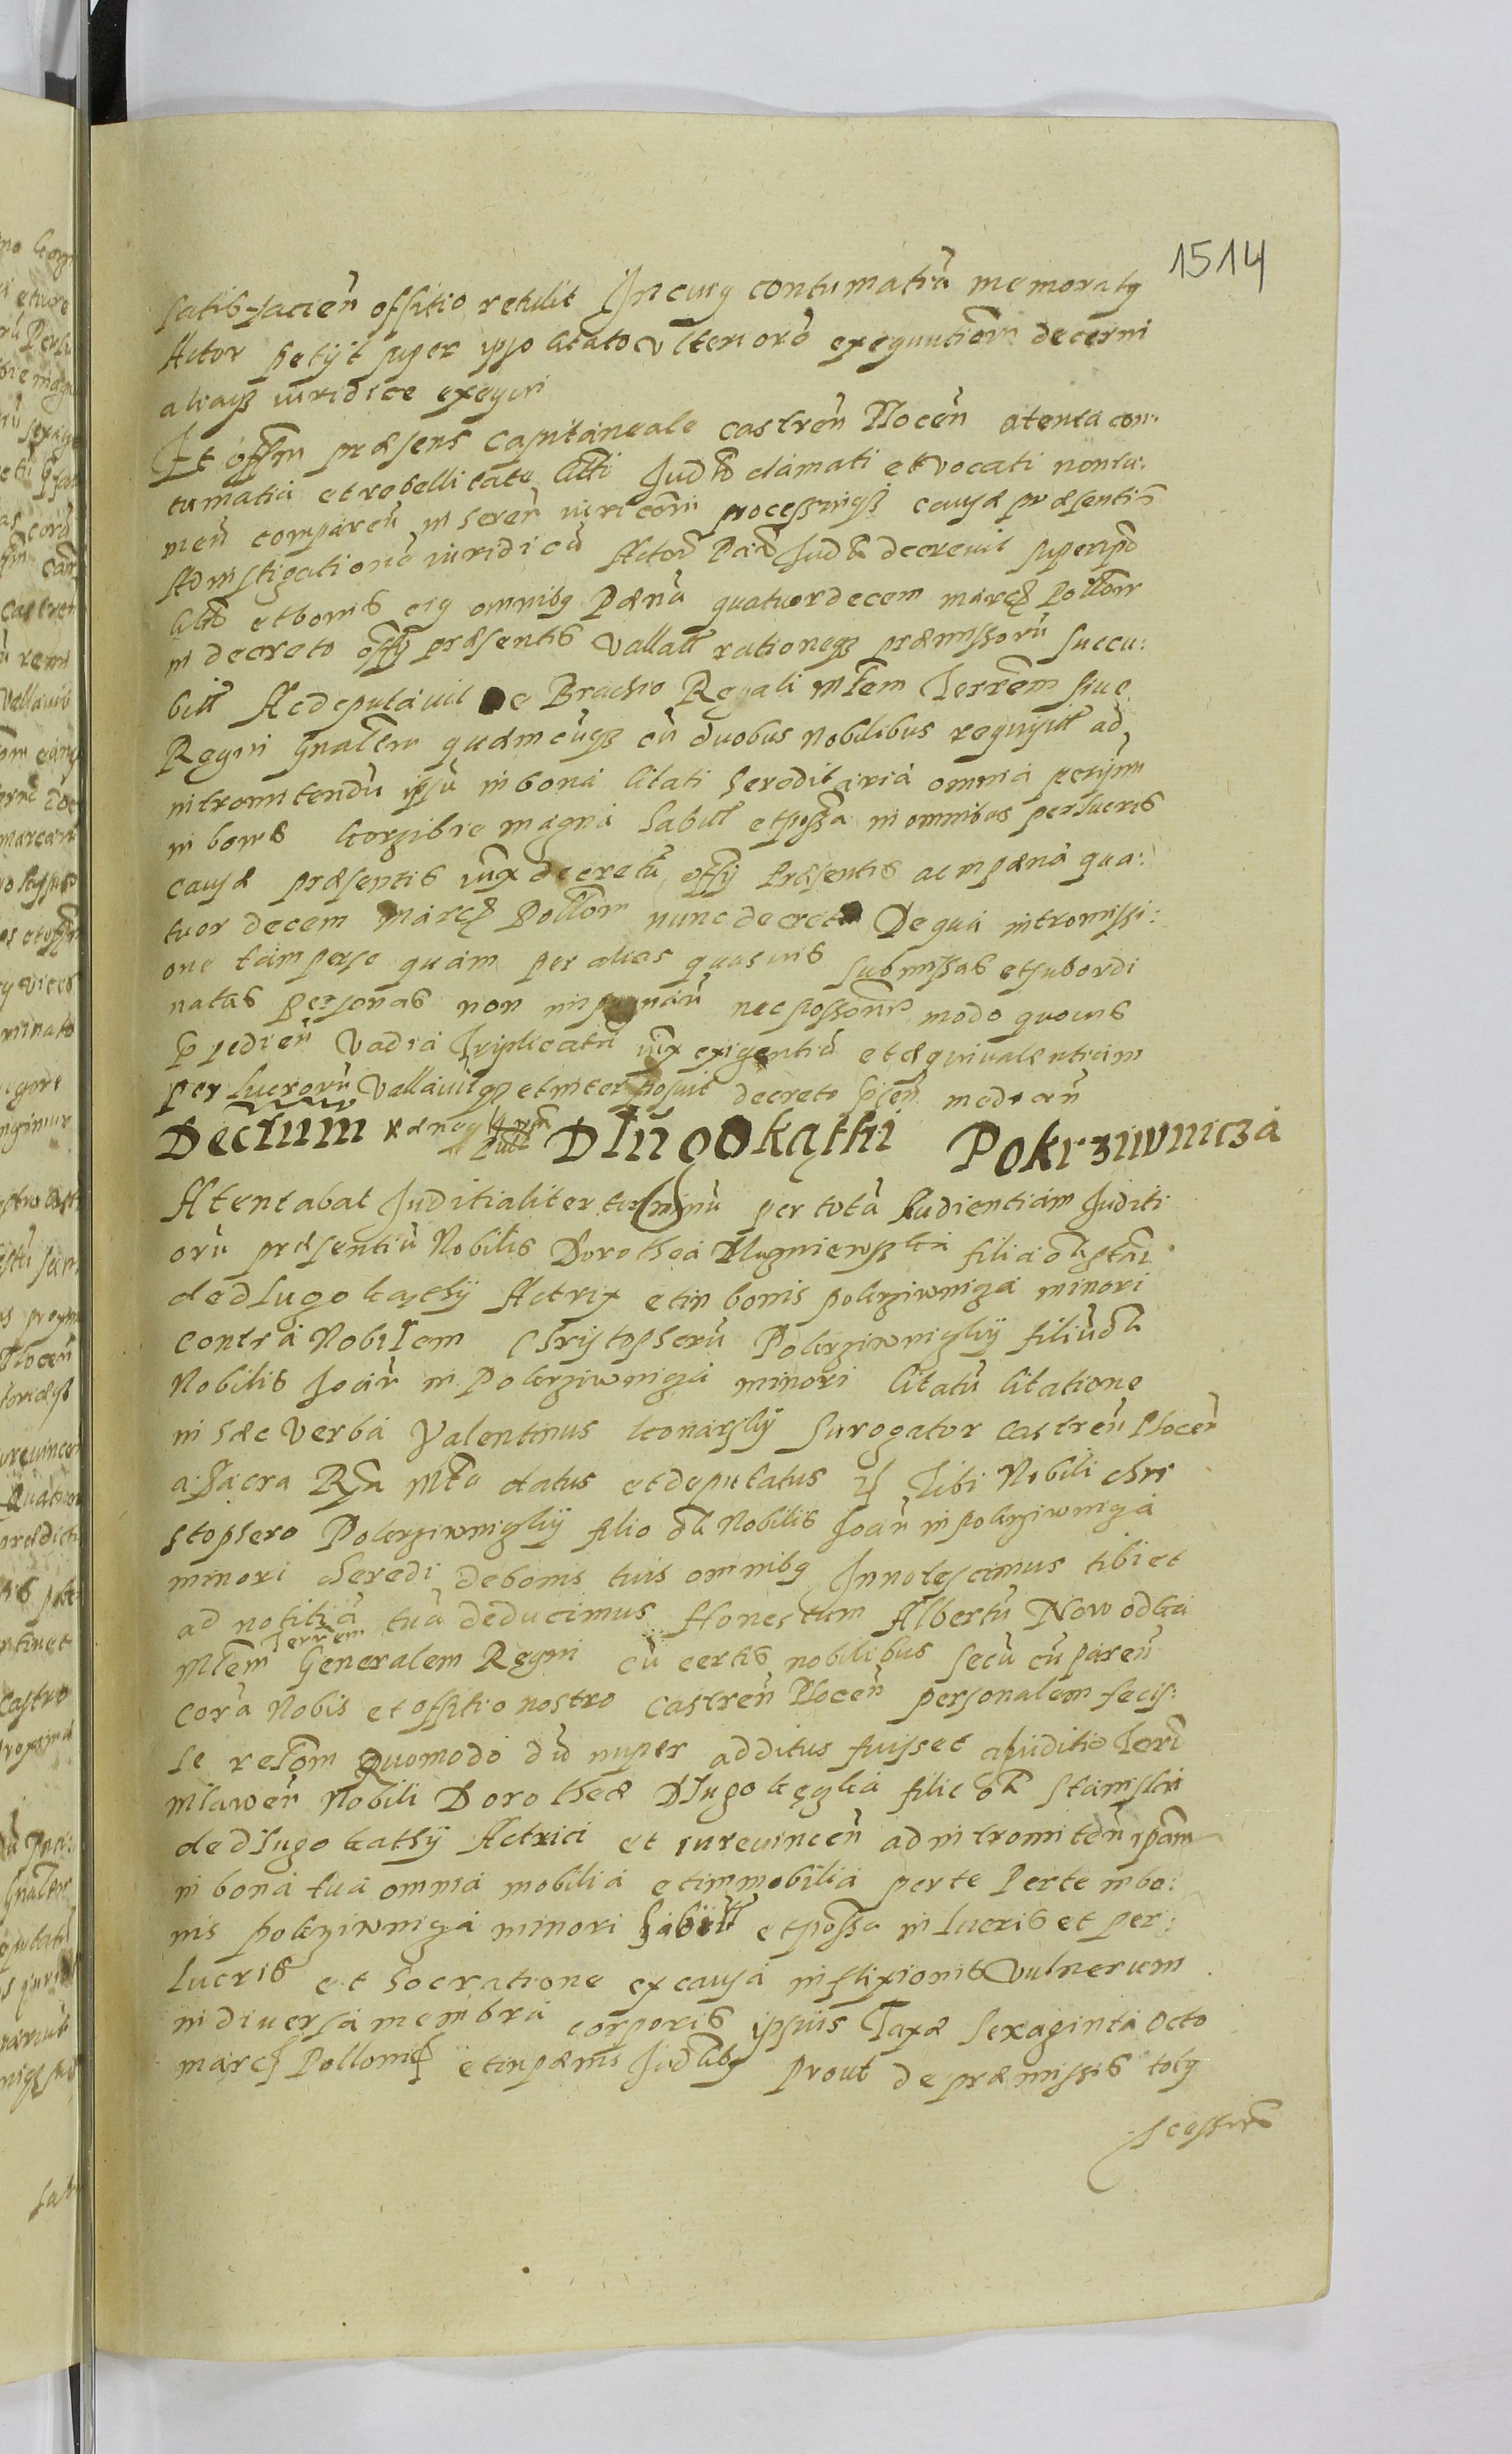 1514
satisfacien offitio retulit In cuiq contumatiã memoratq
Actor petÿt super ipso citato vlteriorẽ exequutioẽm decerni
aliaqz iuridice exequi
Et offm præsens capitaneale castren Plocen atenta con:
tumatia et rebellitate citti Judtr clamati et vocati non ta:
men comparen in heren iuri coni processuiqz causæ præsentis
Ad instigationẽ iuridicã Actoris Judtr decreuit super ipso
citto et bonis eiq omnibq Pænã quatuordecem marcz Pollom
in decreto offÿ præsentis vallatt rationeqz præmissorũ succu:
bitt Ac deputauit de Brachio Regali Mrem Terrrem siue
Regni Gnalem quemcunqz cũ duobus nobilibus requisitt ad
intromitendũ ipsũ in bona Citati hereditaria omnia
in bonis korzibie magna habitt et possa in omnibus perlucris
causæ præsentis iux decretũ offÿ Præsentis ac in pæna qua:
tuor decem Marcz Pollom nunc decreta De qua intromissi:
one tam per se quam per alias quasuis submissas et subordi
natas personas non impugnan nec possoris modo quouis
Impedien Vadia Triplicata iux exigentiã et æquiualentiam
perlucrorũ Vallauit qz et interposuit decreto sũen median
Dectum Dlugokąthi Pokrziwnicza
Atentabat Juditialiter terminũ per totã Audientiam Juditi
orũ præsentiũ Nobilis Dorothea filia
de dlugokąthÿ Actrix et in bonis pokrziwniza minori
contra Nobilem Christopherũ Pokrziwniczkÿ filiũ
Nobilis Joan in Pokrziwniza minori Citatũ Citatione
in hæc verba Valentinus konarskÿ Surogator castren Plocen
a Sacra Ra Mte datus et deputatus Tibi Nobili Chri
stophero Pokrziwniczkÿ filio Nobilis Joan in pokrziwniza
minori heredi de bonis tuis omnibq Innotescimus tibi et
ad notitiã tuã deducimus Honestum Albertũ Nowodka
Mrem Terrrem Generalem Regni cũ certis nobilibus secũ cũparen
corã Nobis et offitio nostro castren Plocen personalem fecis:
se relom Quomodo dũ nuper additus fuisset a Juditio Terri
Mlawen Nobili Dorotheæ Dlugokęcka filie Stanislai
de dlugokathÿ Actrici et iureuincen ad intromiten ipam
in bona tua omnia mobilia et immobilia per te Per te in bo:
nis pokrziwniza minori habitt et possa in lucris et per:
lucris et hoc ratione ex causa inflixionis Vulnerum
in diuersa membra corporis ipsius Taxæ sexaginta octo
marcz Pollomcz et in pænis Judtlibq Prout de præmissis totq